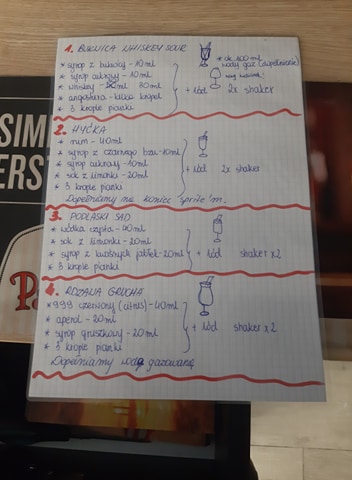 1. BUKNICA WHISKEY SOUR
* syrop z bukwicy - 10ml
* syrop cukrowy - 10ml
* whiskey - 30ml
* angostura - kilka kropel
* 3 krople pianki
+ lód
* ok. 100 ml
wody gaz (dopełnienie)
2x shaker
2. HYĆKA
* rum - 40ml
* syrop z czarnego bzu - 10ml
* syrop cukrowy - 10ml
* sok z limonki - 20ml
* 3 krople pianki
+ lód 2x shaker
Dopełniamy na koniec sprite'm.
3. PODLASKI SAD
* wódka czysta - 40ml
* sok z limonki - 20ml
* syrop z kwaśnych jabłek - 20ml
* 3 krople pianki
+ lód shaker x2
4. RDZAWA GRUCHA
* 999 czerwony (citres) - 40ml
* aperol - 20ml
* syrop gruszkowy - 20ml
* 3 krople pianki
+ lód shaker x2
Dopełniamy wodą gazowaną
SIM
ERST
P